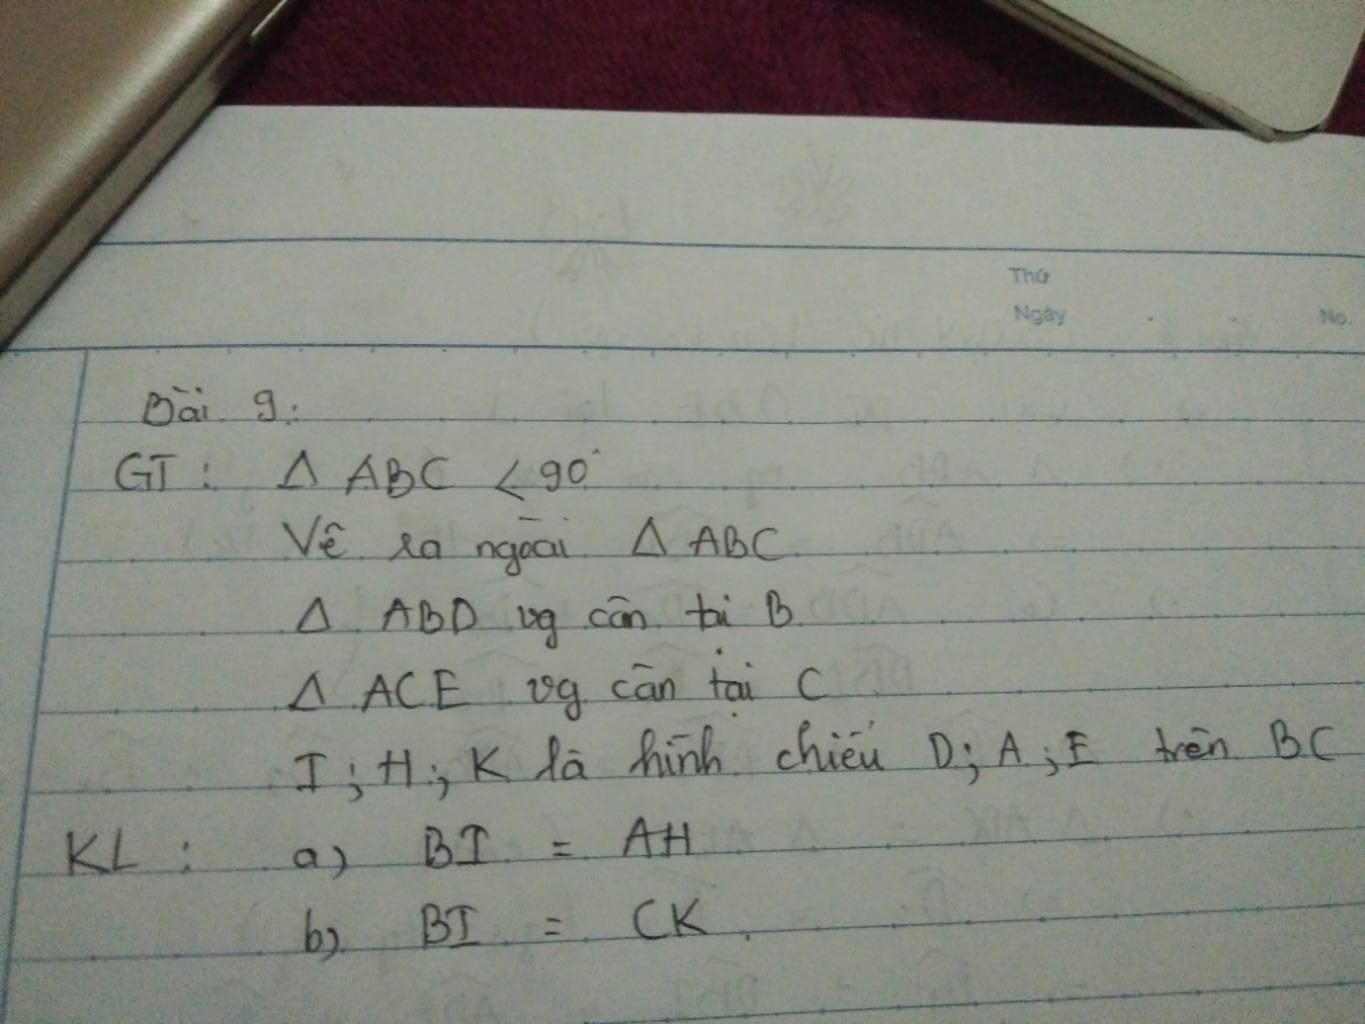 Thứ
Ngày No.
Bài 9:
GT: Δ ABC < 90°
Vẽ ra ngoài Δ ABC
Δ ABD vg cân tại B
Δ ACE vg cân tại C
I; H; K là hình chiếu D; A; E trên BC
KL: a) BI = AH
b) BI = CK.